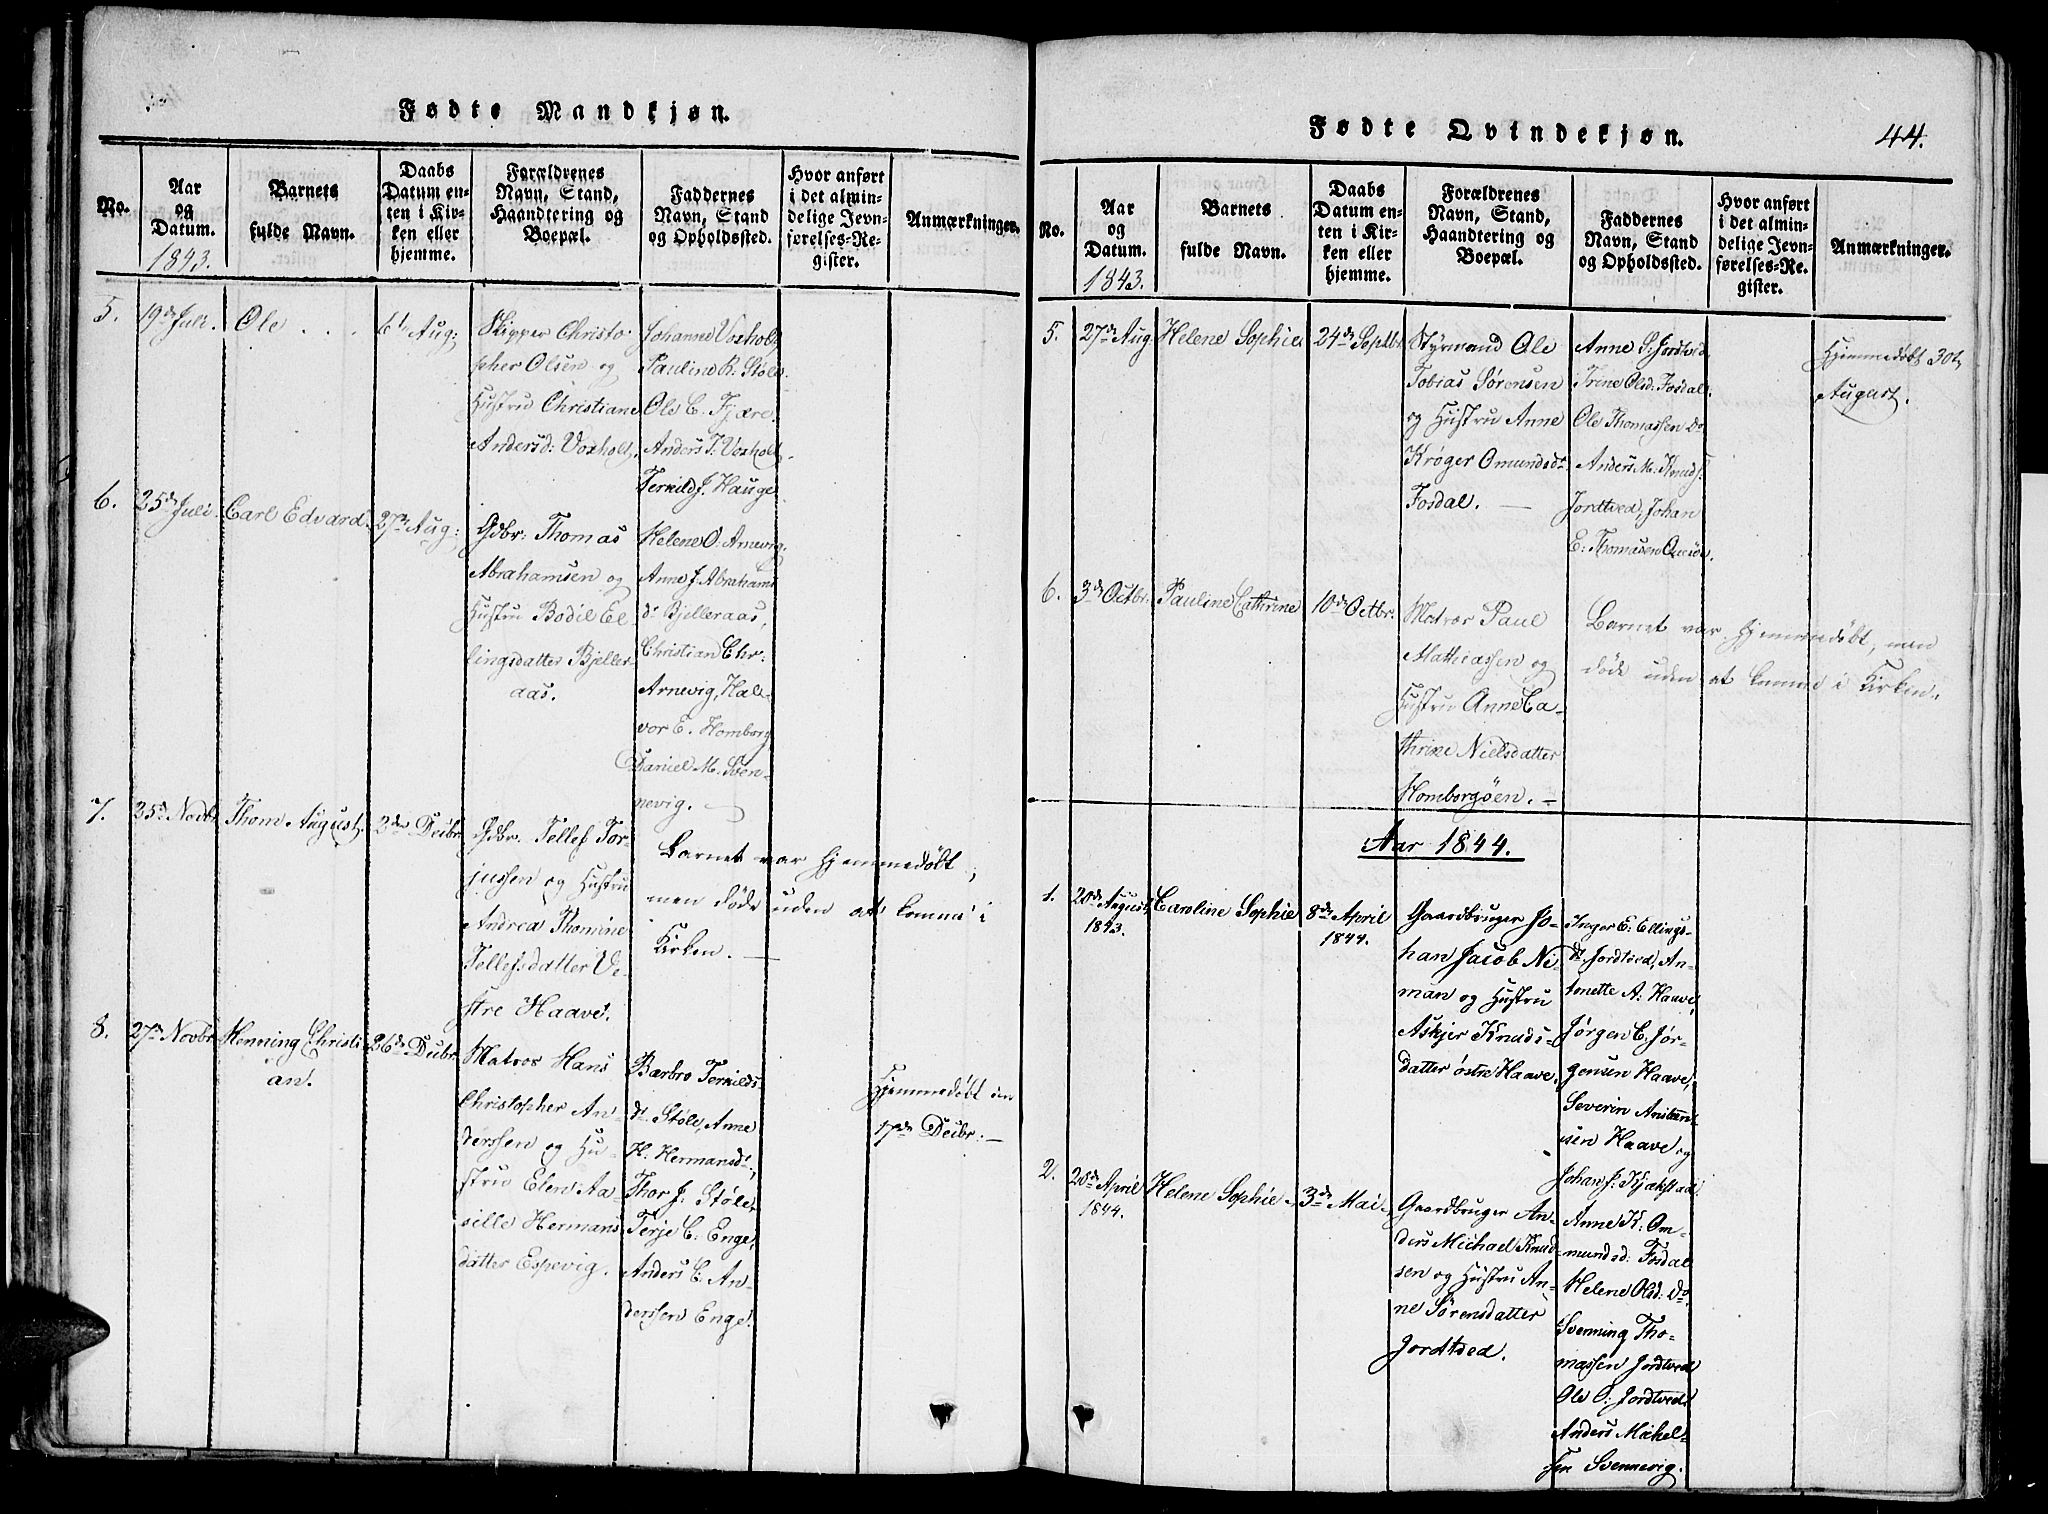 Fødte Mandkjøn.
No.
Aar
og
Datum.
1843.
Barnets
fulde Navn.
Daabs
Datum en-
ten i Kir-
ken eller
hjemme.
Forældrenes
Navn, Stand,
Haandtering og
Boepæl.
Faddernes
Navn, Stand
og Opholdssted.
Hvor anført
i det almin-
delige Jevn-
førelses-Re-
gister.
Anmærkninger.
5.
19de Juli.
Ole
6te Aug:
Skipper Christo-
pher Olsen og
Hustru Christiane
Andersd: Voxholt.
Johanne Voxholt,
Pauline R. Støle.
Ole C. Fjære.
Anders T. Voxholt.
Terkild J. Hauge
6.
25de Juli.
Carl Edvard.
27de Aug:
Gdbr: Thomas
Abrahamsen og
Hustru Bodil El
lingsdatter Bjeller
aas.
Helene O. Arnevig.
Anne J. Abrahams
dr Bjelleraas,
Christian Chr:
Arnevig, Hal-
vor E. Homborg
Daniel M. Sven-
nevig.
7.
25de Novbr
Thom August.
2den Decbr.
Gdbr. Tellef Tor-
jussen og Hustru
Andrea Thomine
Tellefsdatter Ve-
stre Haave.
Barnet var hjemmedøbt,
men døde uden at komme i
Kirken.
8.
27de Novbr
Henning Christi-
an.
26de Decbr.
Matros Hans
Christopher An-
derssen og Hu-
stru Elen Aa-
sille Hermans
datter Espevig.
Barbro Terkilds
dr. Støle, Anne
H. Hermansdr.,
Thor J. Støle,
Terje C. Enge,
Anders C. An-
derssen Enge.
Hjemmedøbt den
17de Decbr:
Fødte Qvindekjøn.
44.
No.
Aar
og
Datum.
1843.
Barnets
fulde Navn.
Daabs
Datum en-
ten i Kir-
ken eller
hjemme.
Forældrenes
Navn, Stand,
Haandtering og
Boepæl.
Faddernes
Navn, Stand
og Opholdssted.
Hvor anført
i det almin-
delige Jevn-
førelses-Re-
gister.
Anmærkninger.
5.
27de Aug
Helene Sophie
24de Septbr
Styrmand Ole
Tobias Sørensen
og Hustru Anne
Krøger Omundsdr
Fosdal.
Anne S. Jordtved
Trine Olsd: Fosdal.
Ole Thomassen Do
Anders M: Knuds:
Jordtved, Johan
E: Thomasen
Hjemmedøbt 30te
August.
6.
3de Octbr.
Pauline Cathrine
10de Octbr.
Matros Paul
Mathiassen og
Hustru Anne Ca-
thrine Nielsdatter
Homborgøen.
Barnet var hjemmedøbt, men
døde uden at komme i Kirken.
Aar 1844.
1.
20de August
1843.
Caroline Sophie
8de April
1844.
Gaardbruger Jo-
han Jacob Ni-
man og Hustru
Askjer Knuds-
datter østre Haave.
Inger E. Ellings-
dr Jordtved, An-
tonette A: Haave,
Jørgen C. Jør-
gensen Haave,
Severin
sen Haave og
Johan J: Kjakstad.
2.
20de April
1844.
Helene Sophie
3de Mai
Gaardbruger An-
ders Michael Knud-
sen og Hustru An-
ne Sørensdatter
Jordtved.
Anne K: Om-
mundsd: Fosdal
Helene Olsd: Do.
Svenning Tho-
massen Jordtved
Ole O: Jordtved
Anders Mikel-
sen Svennevig.